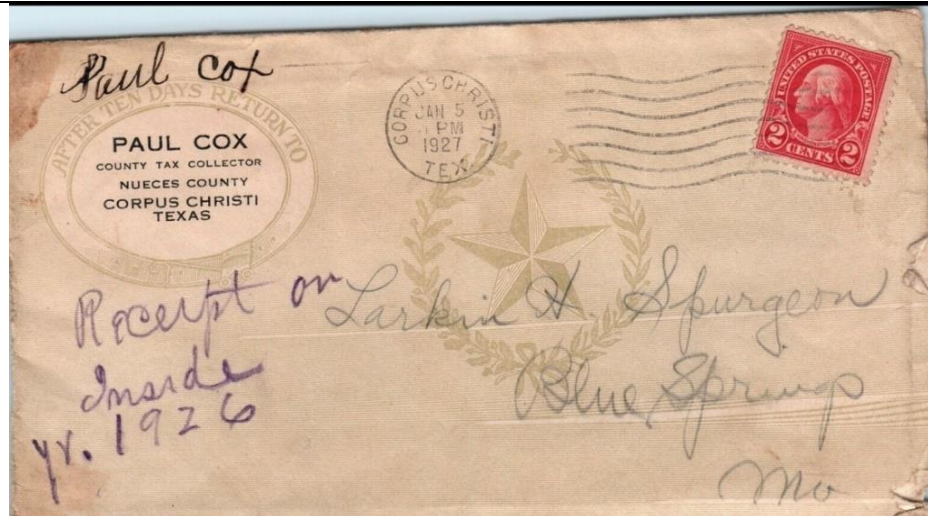 Paul Cox
AFTER TEN DAYS RETURN TO
PAUL COX
COUNTY TAX COLLECTOR
NUECES COUNTY
CORPUS CHRISTI
TEXAS
CORPUS CHRISTI
JAN 5
PM
1927
TEX.
UNITED STATES POSTAGE
2 CENTS 2
Receipt on
Inside
yr. 1926
Larkin H. Spurgeon
Blue Springs
Mo